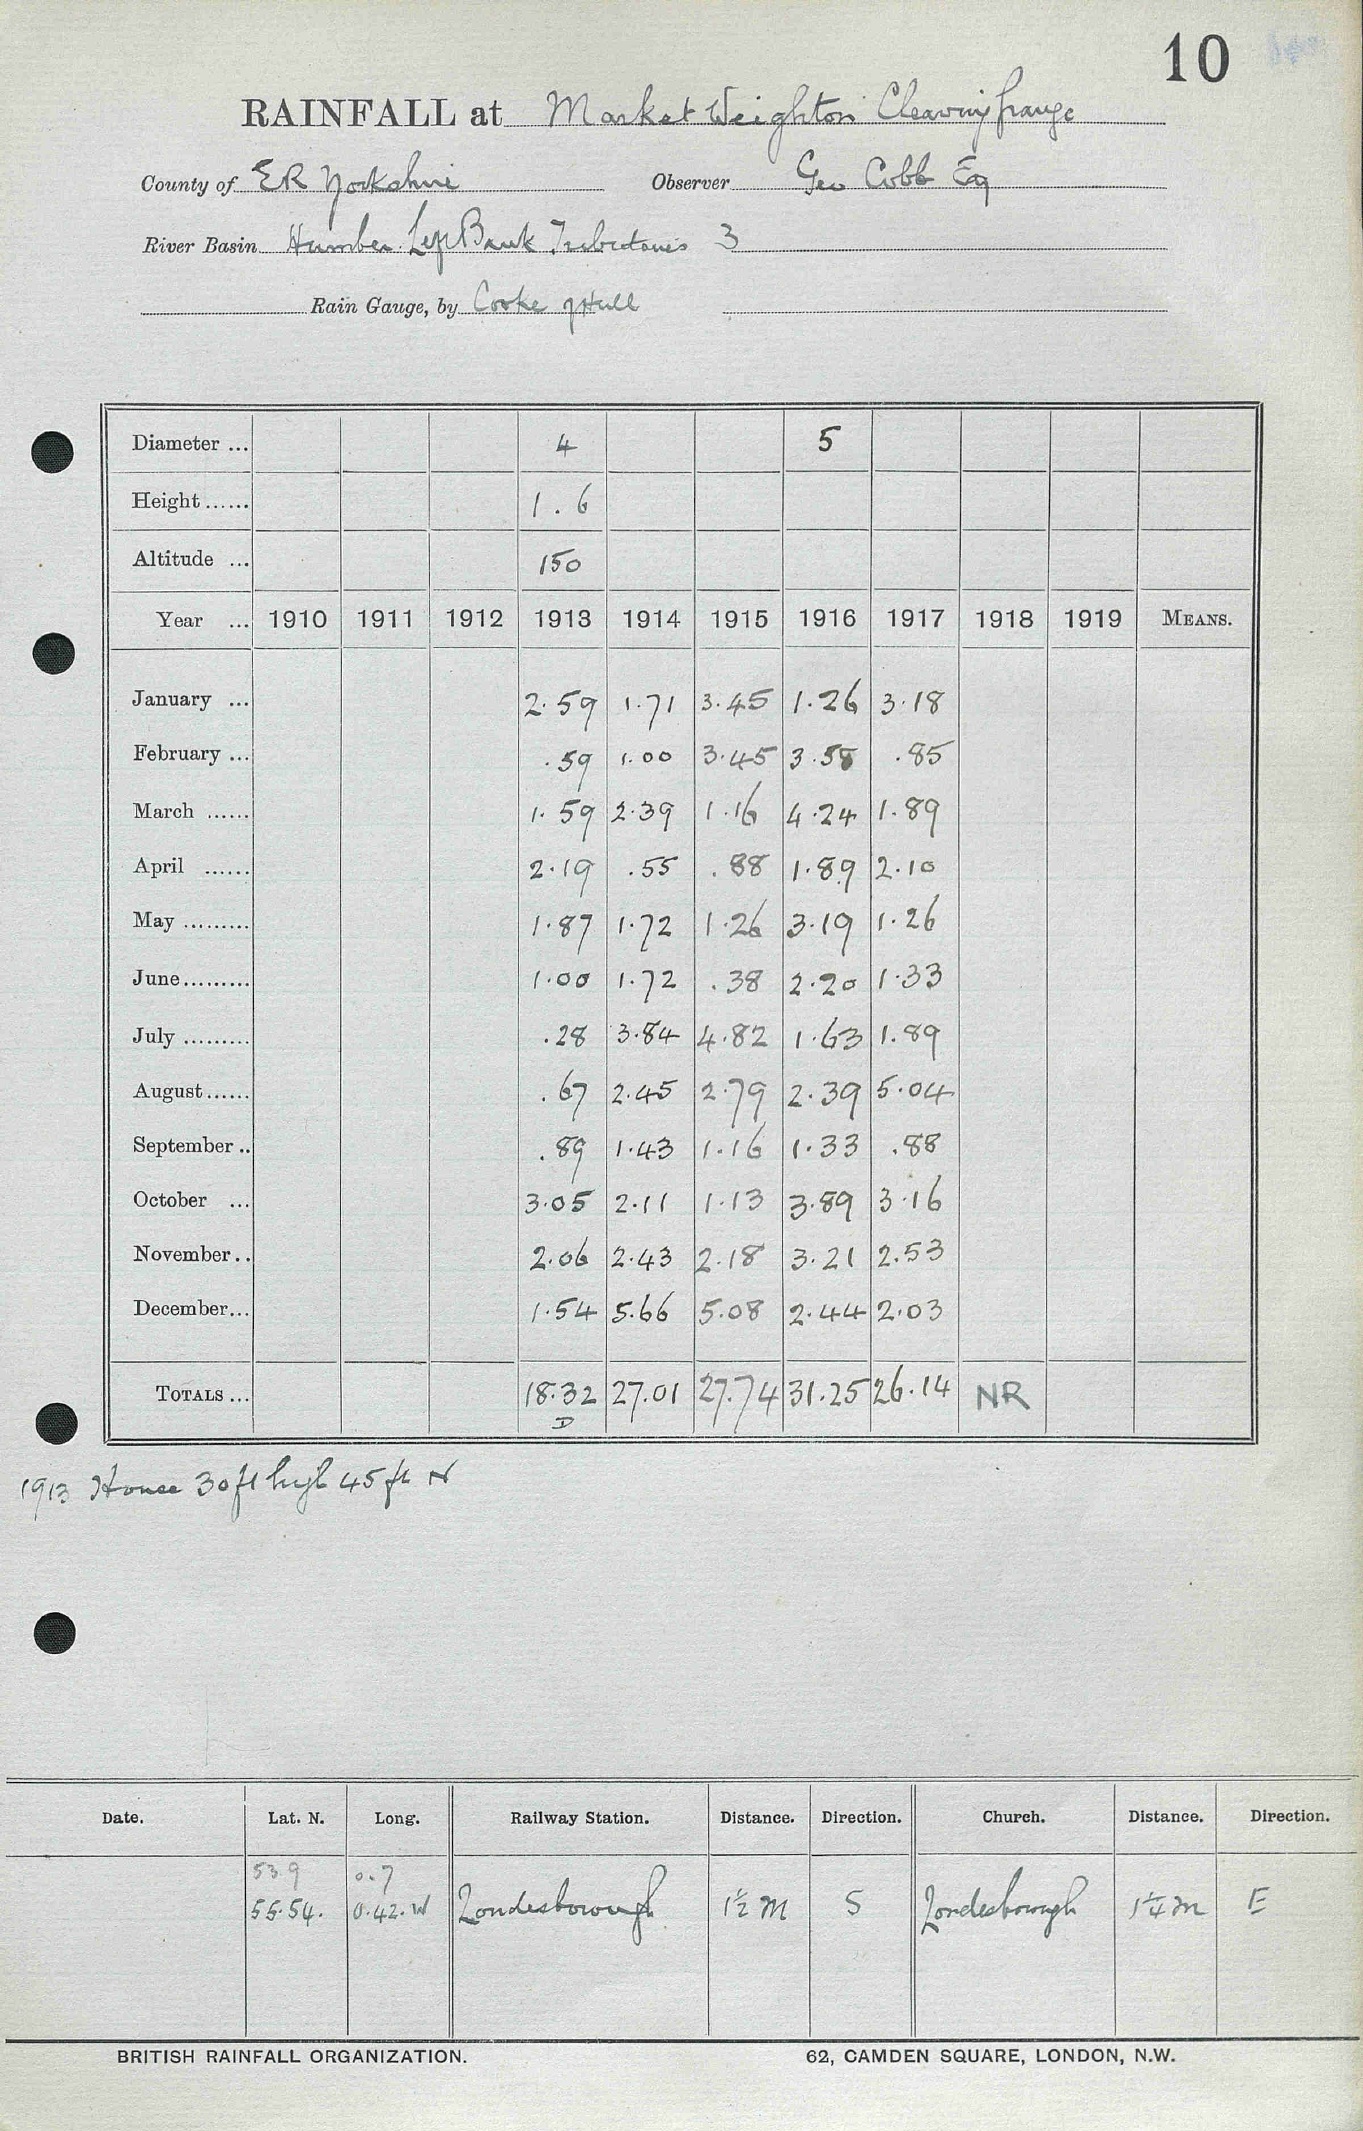 10
RAINFALL at Market Weighton Cleaving Grange
County of E R Yorkshire Observer Geo Cobb Esq
River Basin Humber Left Bank Tributaries 3
Rain Gauge, by Cooke of Hull
Diameter ... 4 5
Height ...... 1.6
Altitude ... 150
Year ... 1910 1911 1912 1913 1914 1915 1916 1917 1918 1919 MEANS.
January ... 2.59 1.71 3.45 1.26 3.18
February ... .59 1.00 3.45 3.58 .85
March ...... 1.59 2.39 1.16 4.24 1.89
April ...... 2.19 .55 .88 1.89 2.10
May ......... 1.87 1.72 1.26 3.19 1.26
June ......... 1.00 1.72 .38 2.20 1.33
July ......... .28 3.84 4.82 1.63 1.89
August ...... .67 2.45 2.79 2.39 5.04
September .. .89 1.43 1.16 1.33 .88
October ... 3.05 2.11 1.13 3.89 3.16
November .. 2.06 2.43 2.18 3.21 2.53
December ... 1.54 5.66 5.08 2.44 2.03
TOTALS ... 18.32 27.01 27.74 31.25 26.14 NR
D
1913 House 30 ft high 45 ft N
Date. Lat. N. Long. Railway Station. Distance. Direction. Church. Distance. Direction.
53.9 0.7
55.54. 0.42.W Londesborough 1½ M S Londesborough 1¼ m E
BRITISH RAINFALL ORGANIZATION. 62, CAMDEN SQUARE, LONDON, N.W.